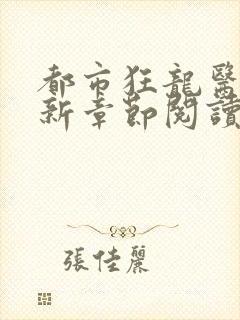 都市狂龍醫
新章節閱讀
張佳麗